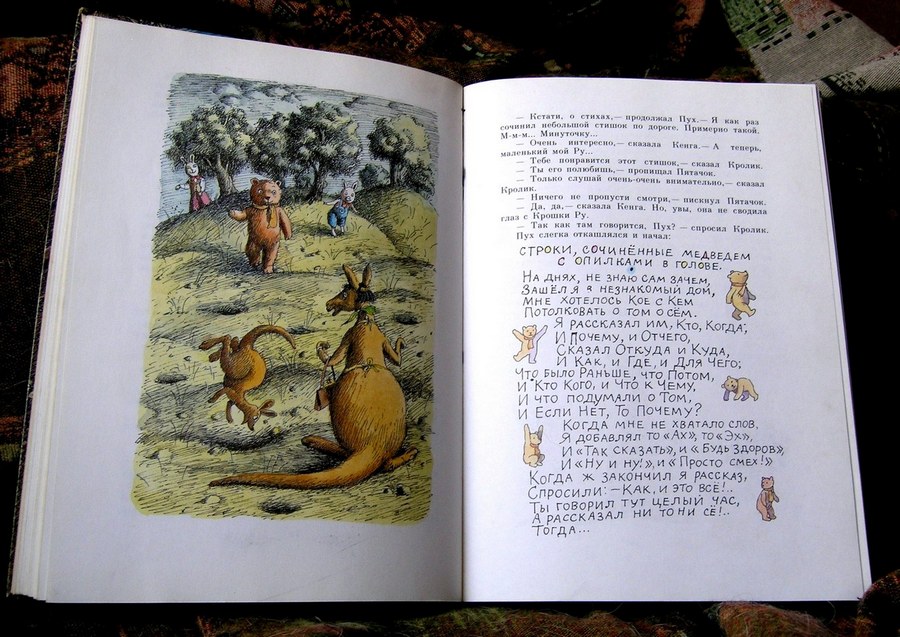 — Кстати, о стихах,— продолжал Пух.— Я как раз
сочинил небольшой стишок по дороге. Примерно такой.
М-м-м... Минуточку...
— Очень интересно,— сказала Кенга.— А теперь,
маленький мой Ру...
— Тебе понравится этот стишок,— сказал Кролик.
— Ты его полюбишь,— пропищал Пятачок.
— Только слушай очень-очень внимательно,— сказал
Кролик.
— Ничего не пропусти смотри,— пискнул Пятачок.
— Да, да,— сказала Кенга. Но, увы, она не сводила
глаз с Крошки Ру.
— Так как там говорится, Пух? — спросил Кролик.
Пух слегка откашлялся и начал:
СТРОКИ, СОЧИНЁННЫЕ МЕДВЕДЕМ
С ОПИЛКАМИ В ГОЛОВЕ.
На днях, не знаю сам зачем,
Зашёл я в незнакомый дом,
Мне хотелось Кое с Кем
Потолковать о том о сём.
Я рассказал им, Кто, Когда,
И Почему, и Отчего,
Сказал Откуда и Куда,
И Как, и Где, и Для Чего;
Что было Раньше, что Потом,
И Кто Кого, и Что к Чему,
И что подумали о Том,
И Если Нет, То Почему?
Когда мне не хватало слов,
Я добавлял то «Ах», то «Эх»,
И «Так сказать», и «Будь здоров»,
И «Ну и ну!», и «Просто смех!»
Когда ж закончил я рассказ,
Спросили: —Как, и это всё!..
Ты говорил тут целый час,
А рассказал ни то ни сё!..
Тогда...